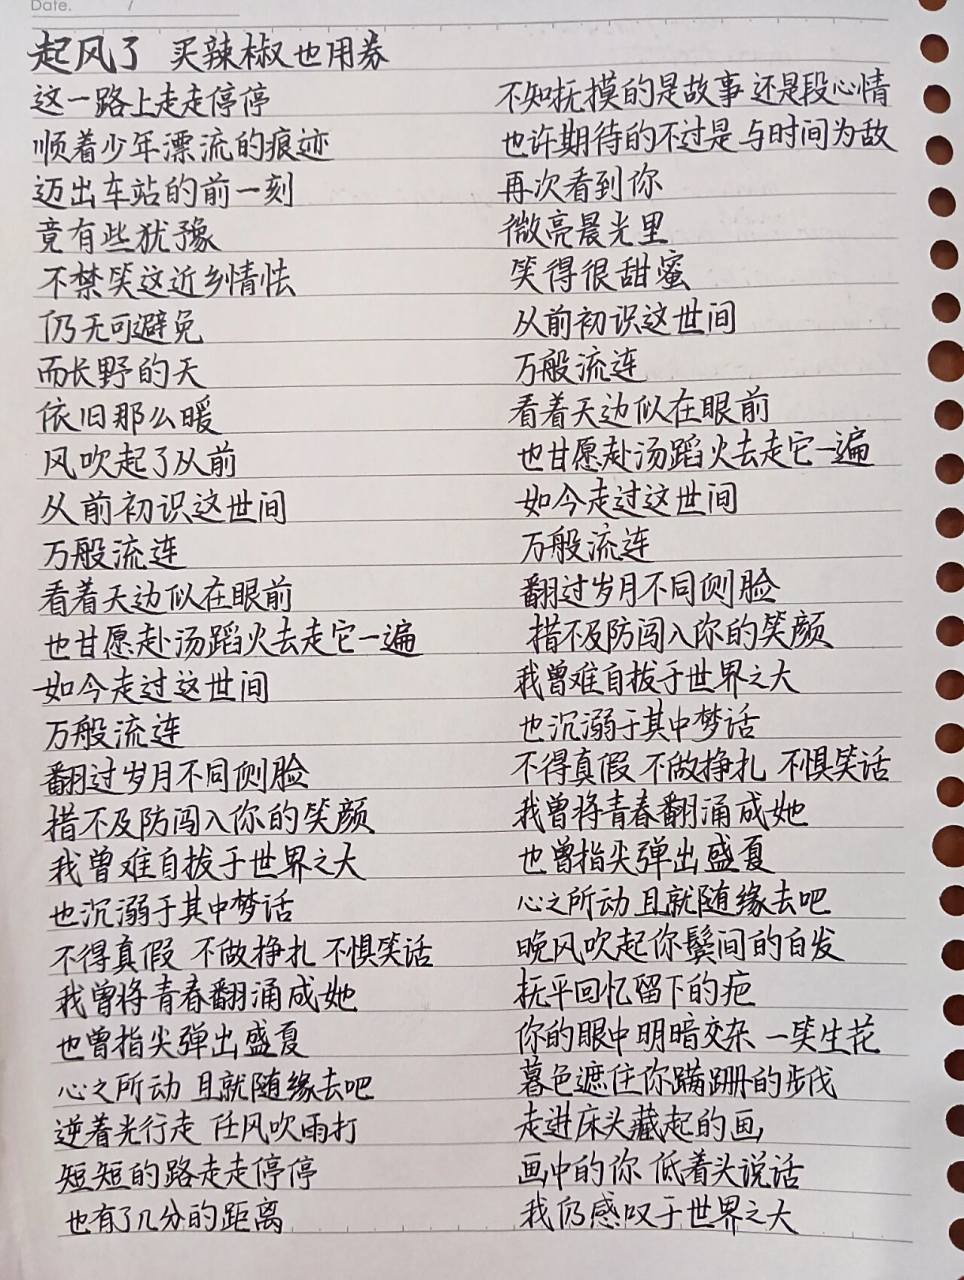 Date. /
起风了 买辣椒也用券
这一路上走走停停
顺着少年漂流的痕迹
迈出车站的前一刻
竟有些犹豫
不禁笑这近乡情怯
仍无可避免
而长野的天
依旧那么暖
风吹起了从前
从前初识这世间
万般流连
看着天边似在眼前
也甘愿赴汤蹈火去走它一遍
如今走过这世间
万般流连
翻过岁月不同侧脸
措不及防闯入你的笑颜
我曾难自拔于世界之大
也沉溺于其中梦话
不得真假 不做挣扎 不惧笑话
我曾将青春翻涌成她
也曾指尖弹出盛夏
心之所动 且就随缘去吧
逆着光行走 任风吹雨打
短短的路走走停停
也有了几分的距离
不知抚摸的是故事 还是段心情
也许期待的不过是 与时间为敌
再次看到你
微亮晨光里
笑得很甜蜜
从前初识这世间
万般流连
看着天边似在眼前
也甘愿赴汤蹈火去走它一遍
如今走过这世间
万般流连
翻过岁月不同侧脸
措不及防闯入你的笑颜
我曾难自拔于世界之大
也沉溺于其中梦话
不得真假 不做挣扎 不惧笑话
我曾将青春翻涌成她
也曾指尖弹出盛夏
心之所动 且就随缘去吧
晚风吹起你鬓间的白发
抚平回忆留下的疤
你的眼中 明暗交杂 一笑生花
暮色遮住你蹒跚的步伐
走进床头藏起的画
画中的你 低着头说话
我仍感叹于世界之大